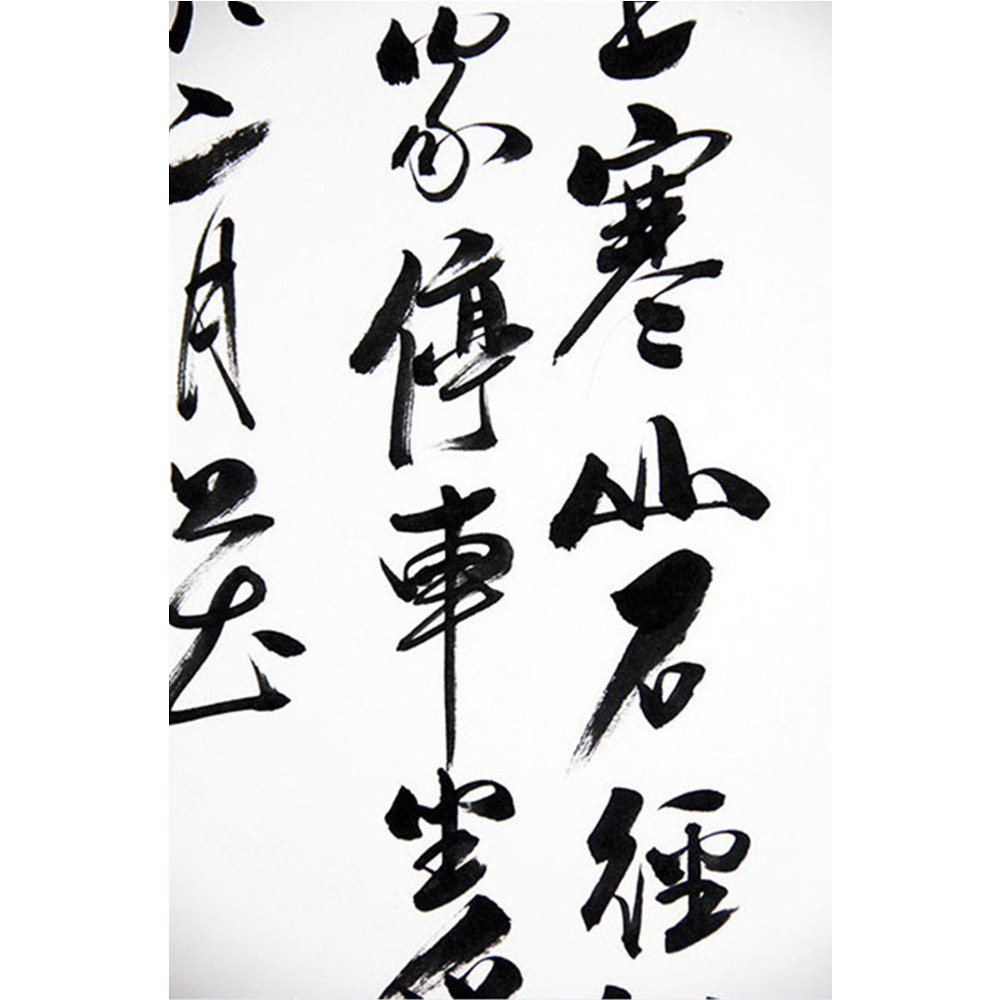 上寒山石徑
家停車坐
二月花